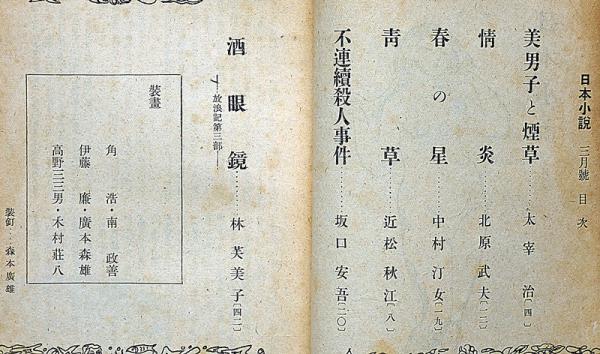 日本小說 三月號 目次
美男子と煙草………太宰治〔四〕
情炎………北原武夫〔一二〕
春の星………中村汀女〔一九〕
靑草………近松秋江〔八〕
不連續殺人事件………坂口安吾〔二〇〕
酒眼鏡………林芙美子〔四二〕
——放浪記第三部——
裝畫
角浩・南政善
伊藤廉・廣本森雄
高野三三男・木村莊八
裝釘 森本廣雄